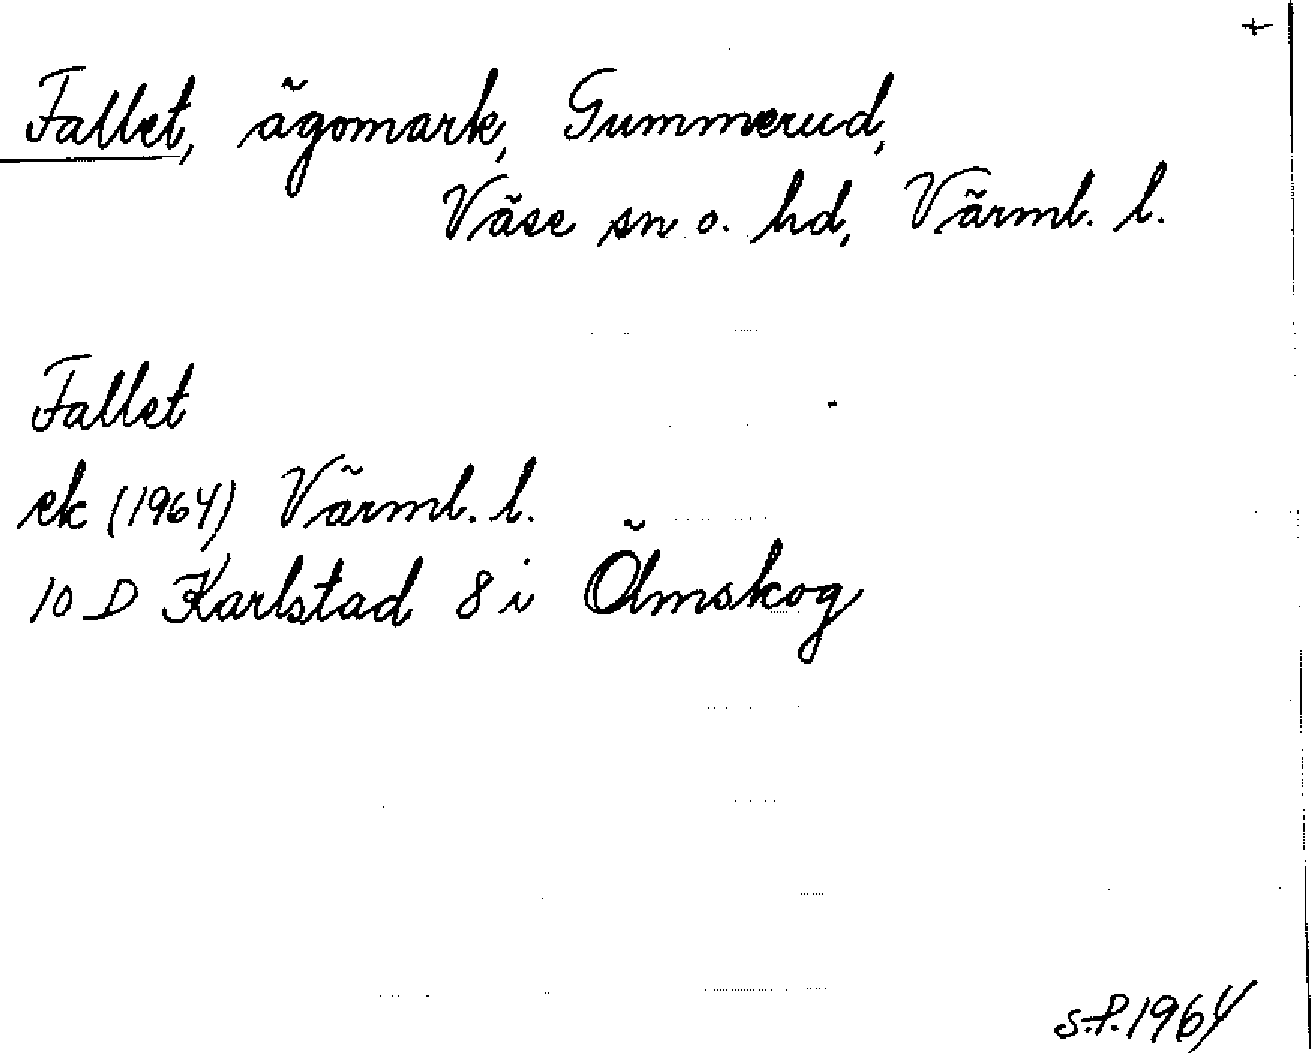 +
Fallet, ägomark, Gummerud,
Väse sn o. hd, Värml. l.
Fallet
ek (1964) Värml. l.
10 D Karlstad 8 i Ölmskog
S.P. 1964